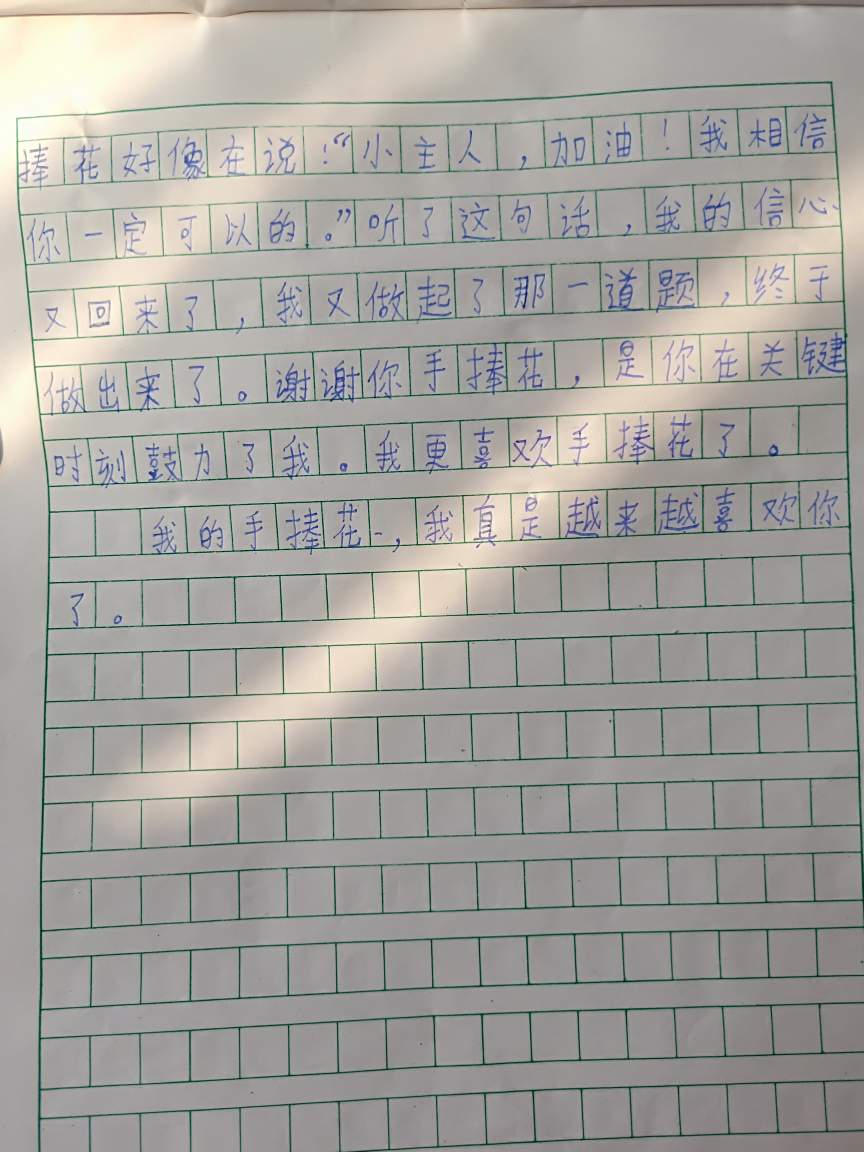 捧花好像在说:“小主人,加油!我相信
你一定可以的。”听了这句话,我的信心
又回来了,我又做起了那一道题,终于
做出来了。谢谢你手捧花,是你在关键
时刻鼓力了我。我更喜欢手捧花了。
我的手捧花,我真是越来越喜欢你
了。